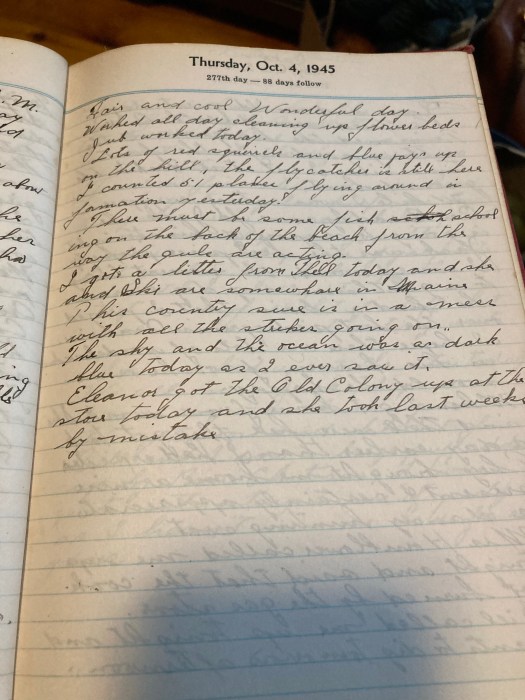 Thursday, Oct. 4, 1945
277th day — 88 days follow
Fair and cool Wonderful day.
Worked all day cleaning up flower beds
Jub worked today.
Lots of red squirrels and blue jays up
on the hill, the flycatcher is still here
I counted 51 planes flying around in
formation yesterday.
There must be some fish school
ing on the back of the beach from the
way the gulls are acting.
I got a letter from today and she
and are somewhere in Maine
This country sure is in a mess
with all the strikes going on,,
The sky and the ocean was as dark
blue today as I ever saw it.
Eleanor got the Old Colony up at the
store today and she took last weeks
by mistake